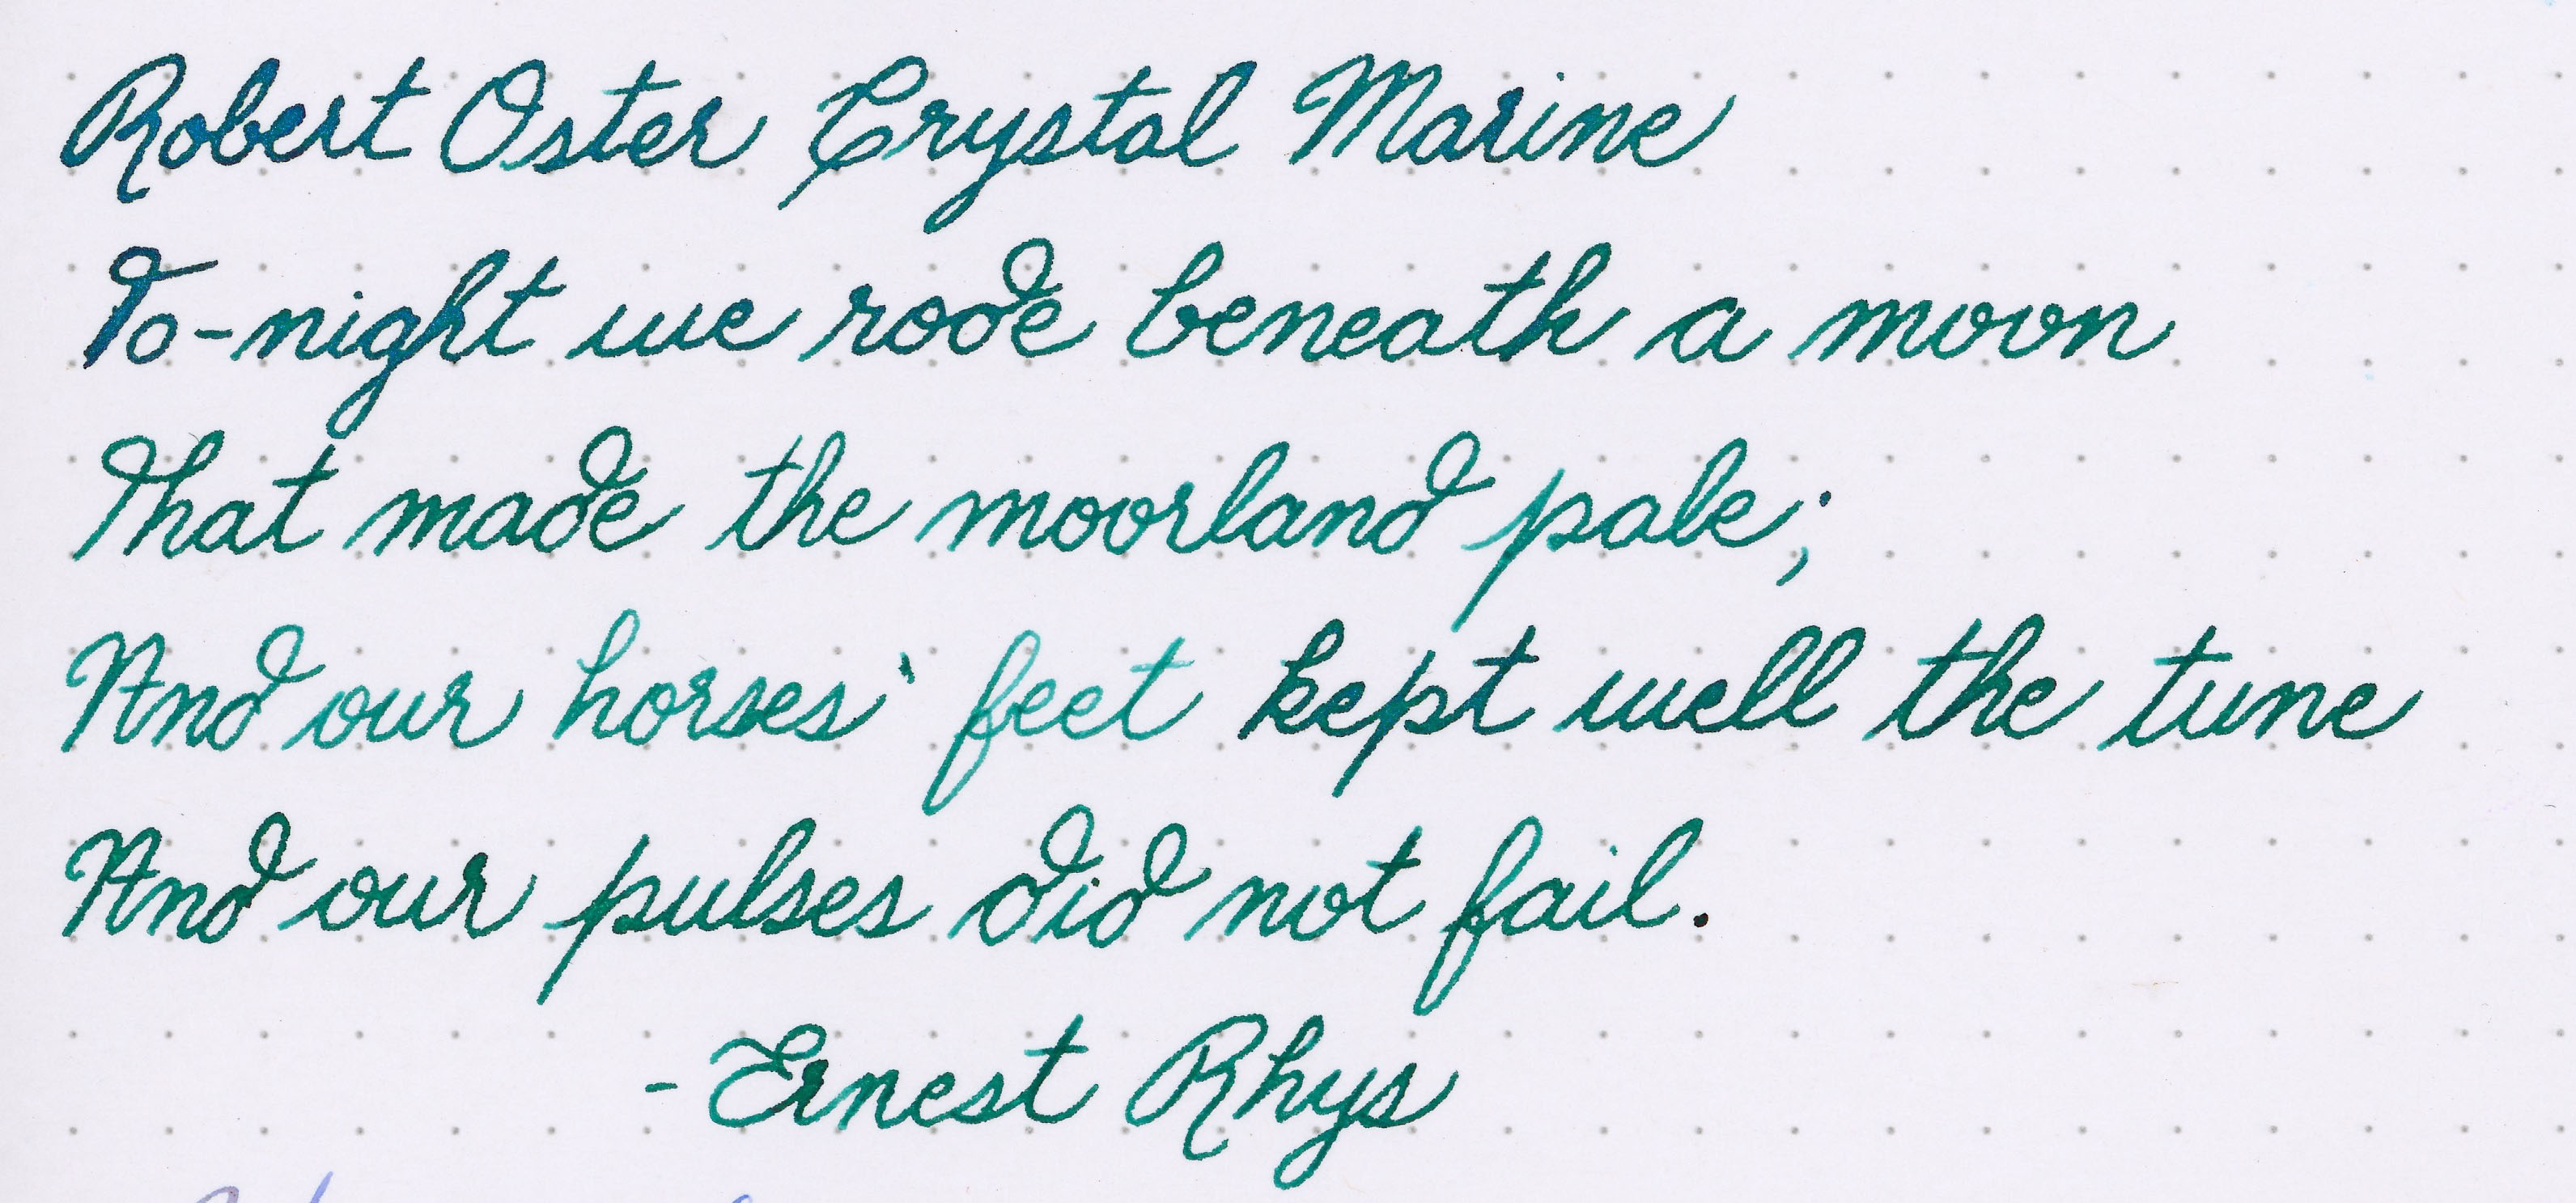 Robert Oster Crystal Marine
To-night we rode beneath a moon
That made the moorland pale;
And our horses' feet kept well the tune
And our pulses did not fail.
- Ernest Rhys